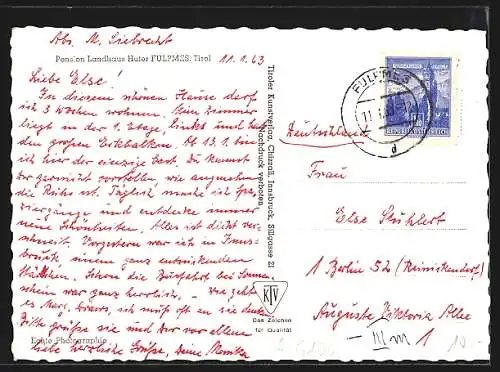 Abs. M. Siebrecht
Pension Landhaus Huter FULPMES, Tirol
11.1.63
Liebe Else!
In diesem schönen Hause darf
ich 3 Wochen wohnen. Mein Zimmer
liegt in der 1. Etage, links und hat
den großen Eckbalkon. Ab 13.1. bin
ich hier der einzige Gast. Du kannst
Dir garnicht vorstellen wie angenehm
die Ruhe ist. Täglich mache ich Spa-
ziergänge und entdecke immer
neue Schönheiten. Alles ist dicht ver-
schneit. Vorgestern war ich in Inns-
bruck, einem ganz entzückenden
Städtchen. Schon die Busfahrt bei Sonnen-
schein war ganz herrlich. - Wie geht
es
ich muß oft an sie denken
Bitte grüße sie und Dir vor allem
liebe herzliche Grüße, Deine Monika
Echte Photographie
Tiroler Kunstverlag, Chizzali, Innsbruck, Sillgasse 21
Nachdruck verboten
KTV
Das Zeichen
für Qualität
FULPMES
11.1.
d
REPUBLIK ÖSTERREICH
Deutschland
Frau
Else
1 Berlin 52 (Reinickendorf)
Auguste Viktoria Allee
1
10.-